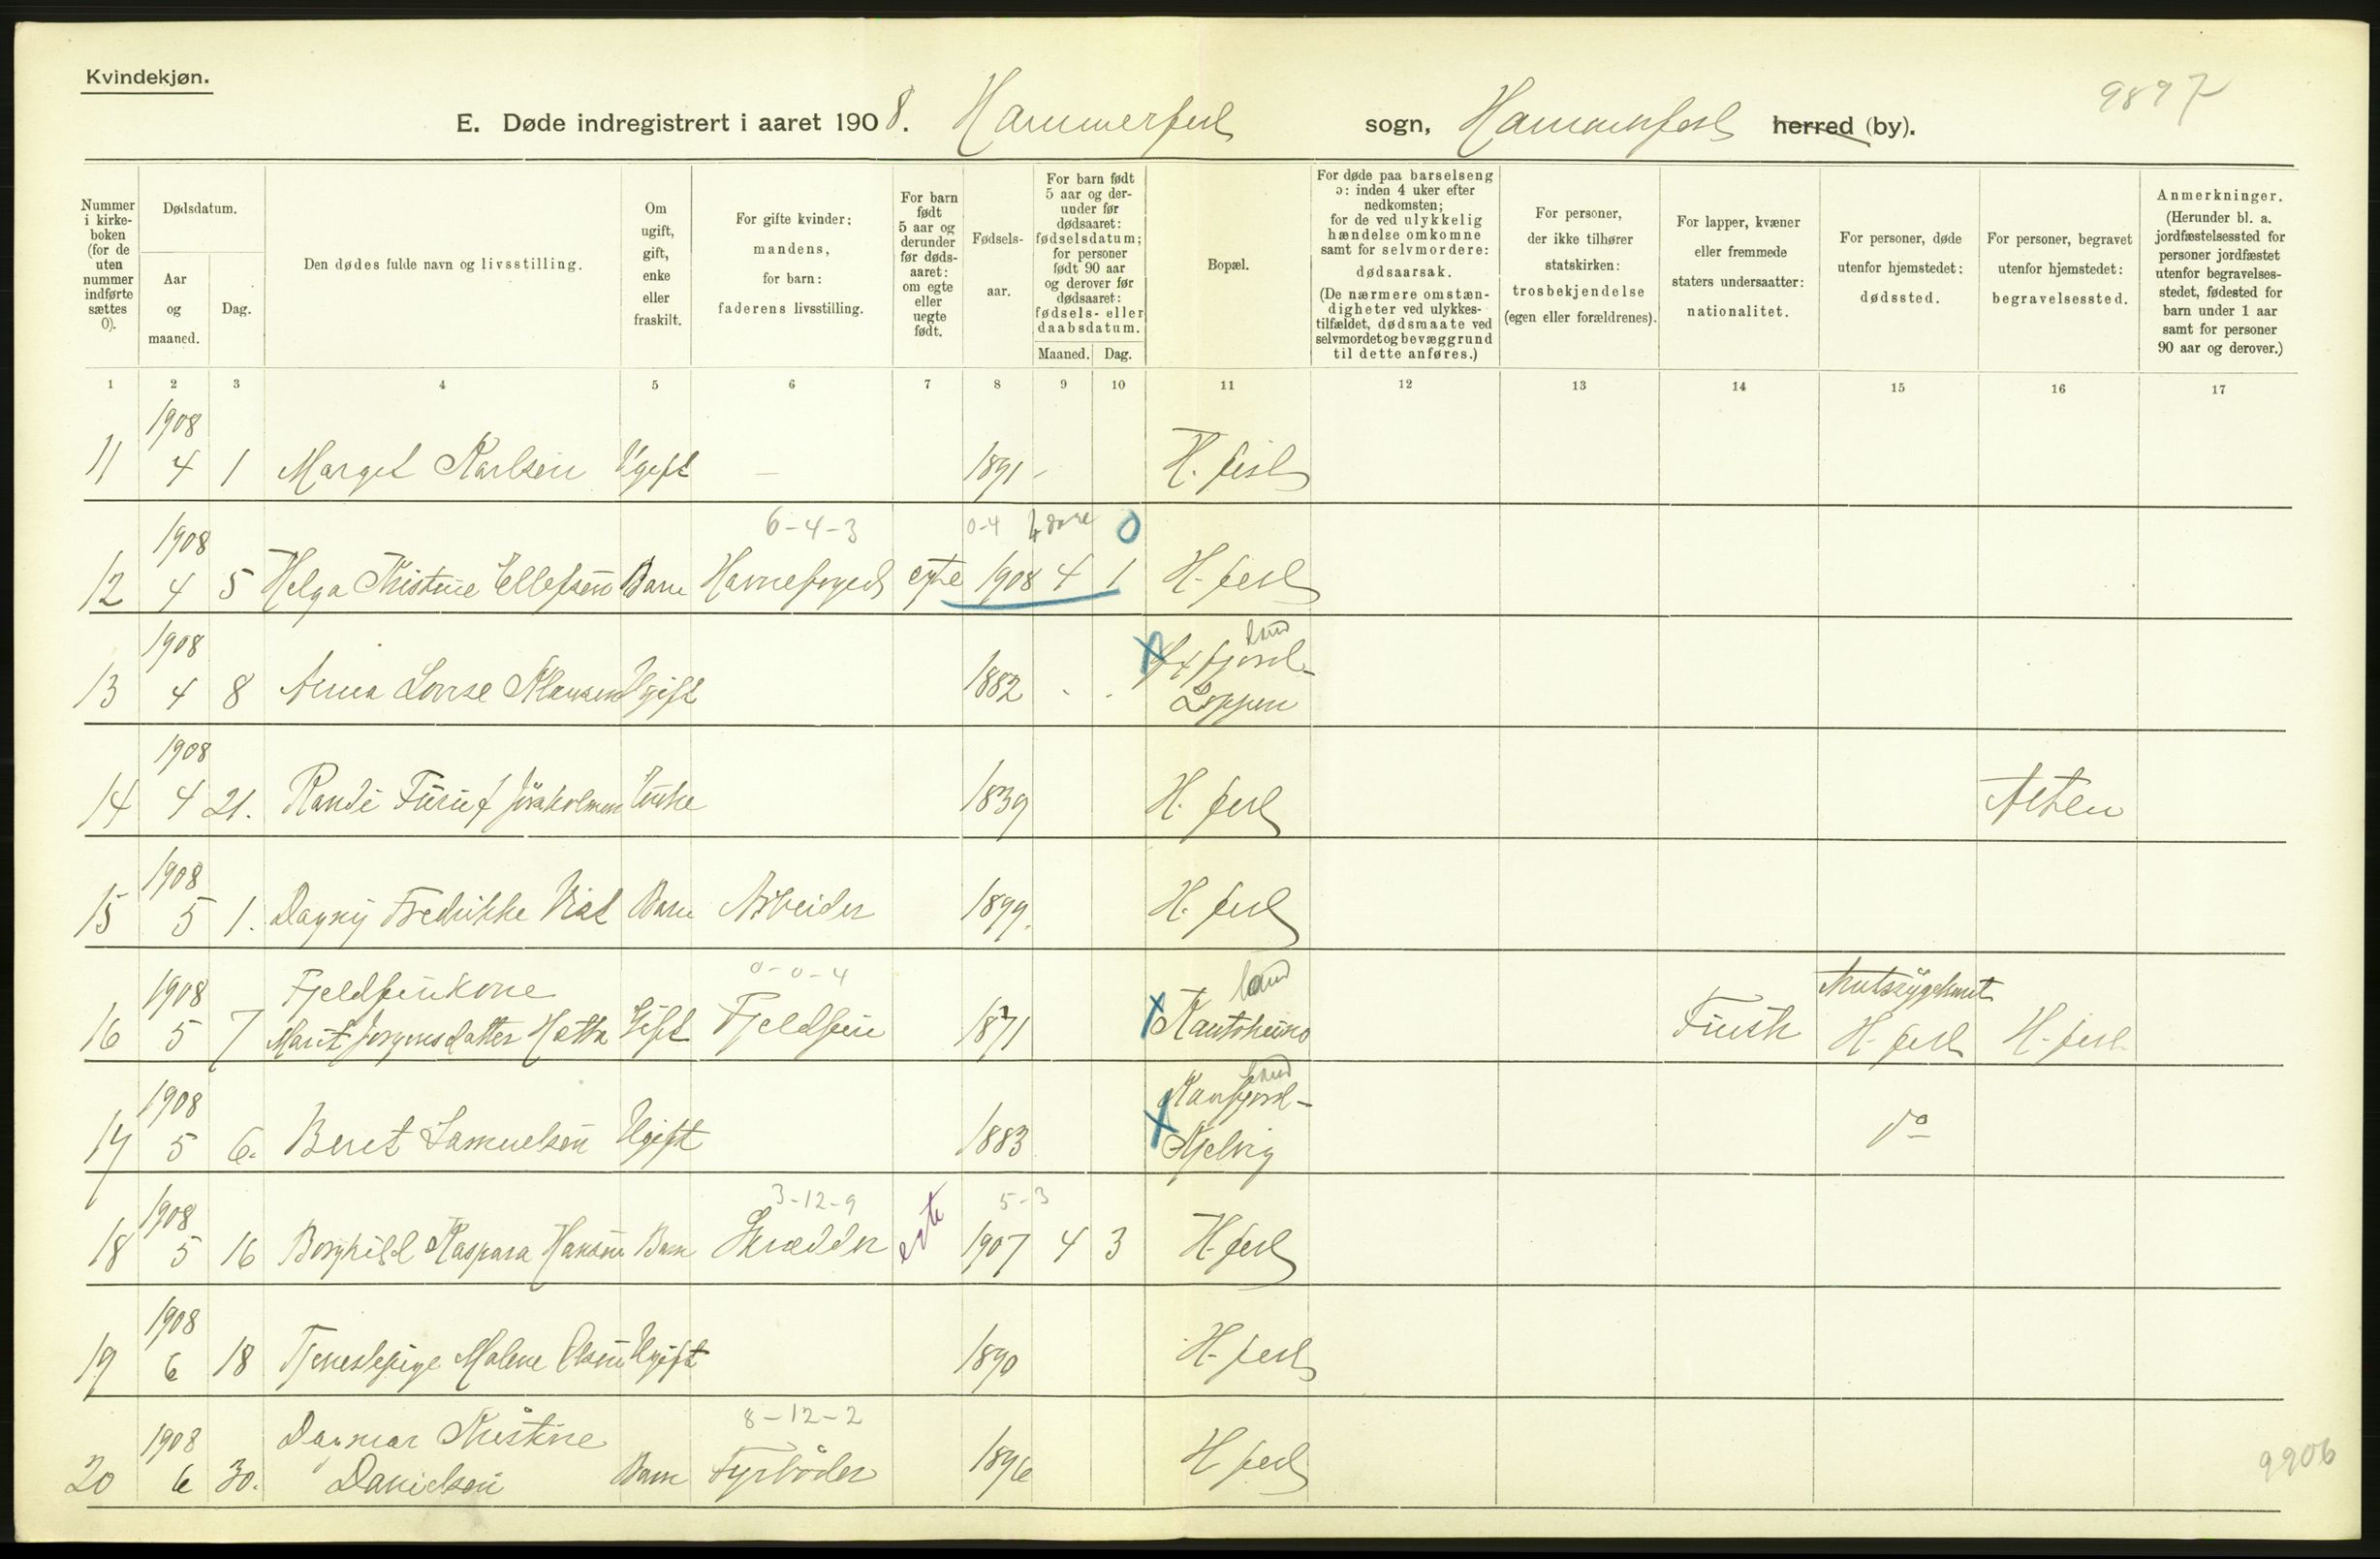 Kvindekjøn.
9897
E. Døde indregistrert i aaret 1908. Hammerfest sogn, Hammerfest herred (by).
Nummer i kirke-boken (for de uten nummer indførte sættes 0).
Dødsdatum.
Aar og maaned.
Dag.
Den dødes fulde navn og livsstilling.
Om ugift, gift, enke eller fraskilt.
For gifte kvinder: mandens, for barn: faderens livsstilling.
For barn født 5 aar og derunder før døds-aaret: om egte eller uegte født.
Fødsels-aar.
For barn født 5 aar og der-under før dødsaaret: fødselsdatum; for personer født 90 aar og derover før dødsaaret: fødsels- eller daabsdatum.
Maaned. Dag.
Bopæl.
For døde paa barselseng ɔ: inden 4 uker efter nedkomsten; for de ved ulykkelig hændelse omkomne samt for selvmordere: dødsaarsak. (De nærmere omstæn-digheter ved ulykkes-tilfældet, dødsmaate ved selvmordet og bevæggrund til dette anføres.)
For personer, der ikke tilhører statskirken: trosbekjendelse (egen eller forældrenes).
For lapper, kvæner eller fremmede staters undersaatter: nationalitet.
For personer, døde utenfor hjemstedet: dødssted.
For personer, begravet utenfor hjemstedet: begravelsessted.
Anmerkninger. (Herunder bl. a. jordfæstelsessted for personer jordfæstet utenfor begravelses-stedet, fødested for barn under 1 aar samt for personer 90 aar og derover.)
1 2 3 4 5 6 7 8 9 10 11 12 13 14 15 16 17
1908
11 4 1 Margit Karlsen Ugift — 1891 - H. fest
6-4-3 0-4 0
1908
12 4 5 Helga Kristine Ellefsen Barn Havnefoged egte 1908 4 1 H. fest
1908 land
13 4 8 Anna Lovise Klausen Ugift 1882 - - Øxfjord- Loppen
1908
14 4 21. Randi Enke 1839 H. fest Alten
1908
15 5 1. Dagny Fredrikke Barn Arbeider 1899. H. fest
0-0-4 land
1908 Fjeldfinkone
16 5 7 Marit Jørgensdatter Hætta Gift Fjeldfin 1871 Kautokeino Finsk H. fest H. fest
1908 land
17 5 6. Beret Samuelsen Ugift 1883 Kjelvig do
3-12-9 5-3
1908
18 5 16 Borghild Kaspara Hansen Barn Skrædder egte 1907 4 3 H. fest
1908
19 6 18 Tjenestepige Malene Olsen Ugift 1890 H. fest
8-12-2
1908 Dagmar Kristine
20 6 30. Danielsen Barn Fyrbøder 1896 H. fest
9906